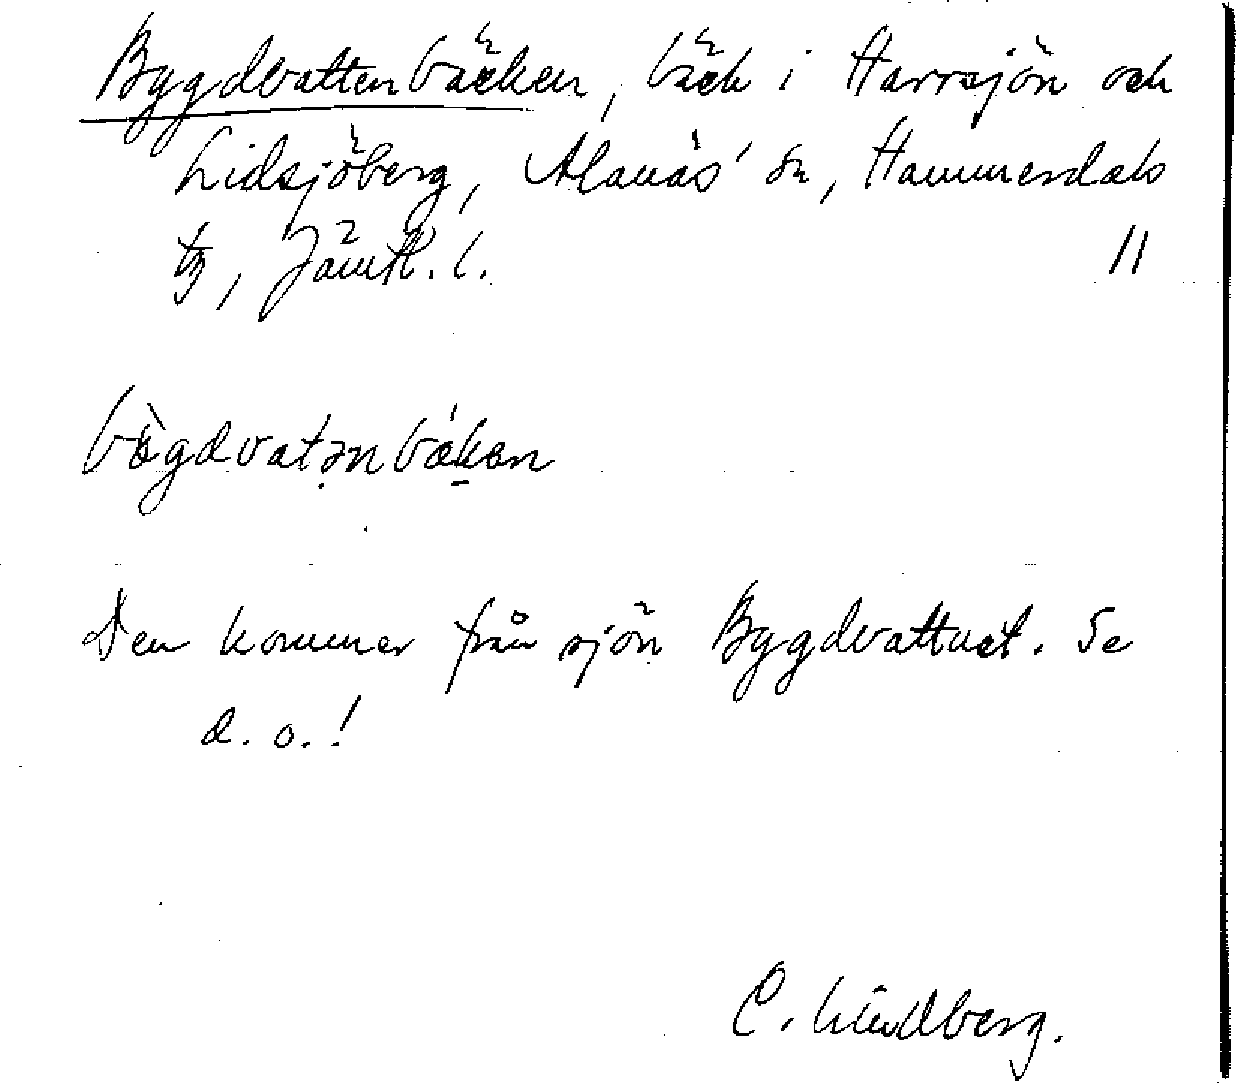 Bygdvattenbäcken, bäck i Harrsjön och
Lidsjöberg, Alanäs sn, Hammerdals
tg, Jämtl. l. 11
bø̀gdvatənbǽkən
Den kommer från sjön Bygdvattnet. Se
d. o.!
C. Lindberg.